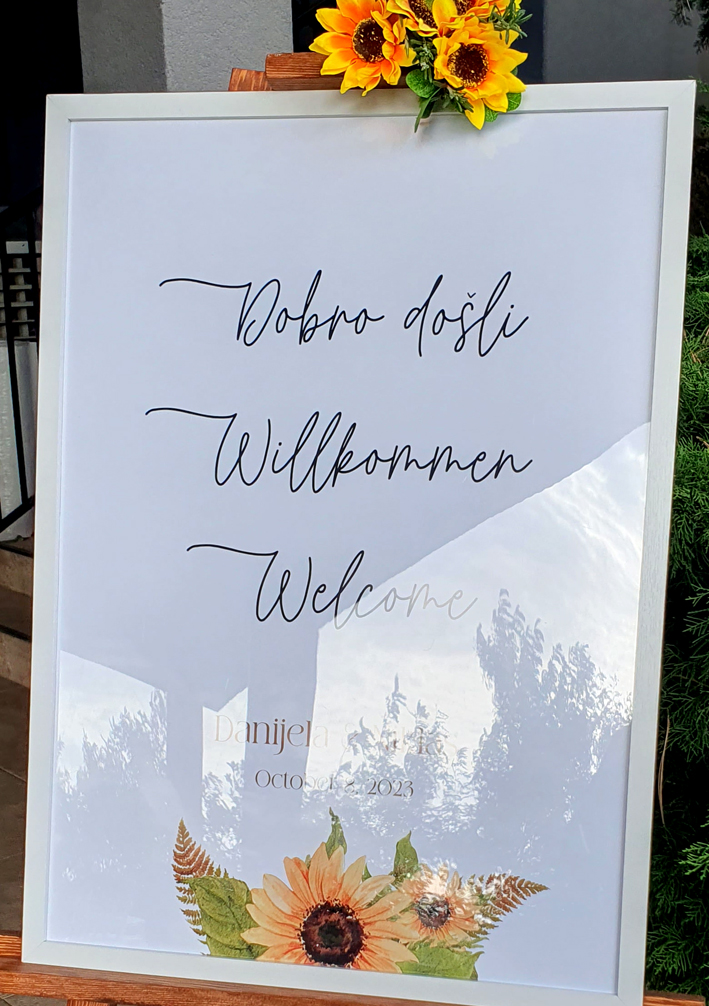 Dobro došli
Willkommen
Welcome
Danijela
October 8, 2023